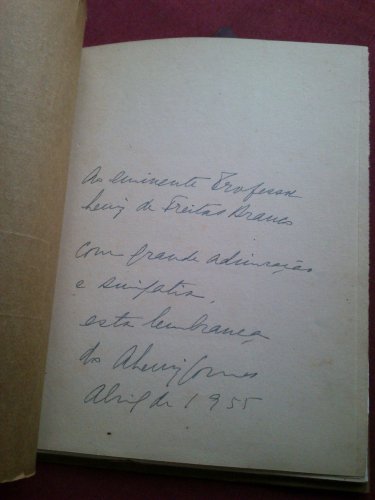 Ao eminente Professor
Luiz de Freitas Branco
com grande admiração
e simpatia,
esta lembrança
do Gomes
Abril de 1955